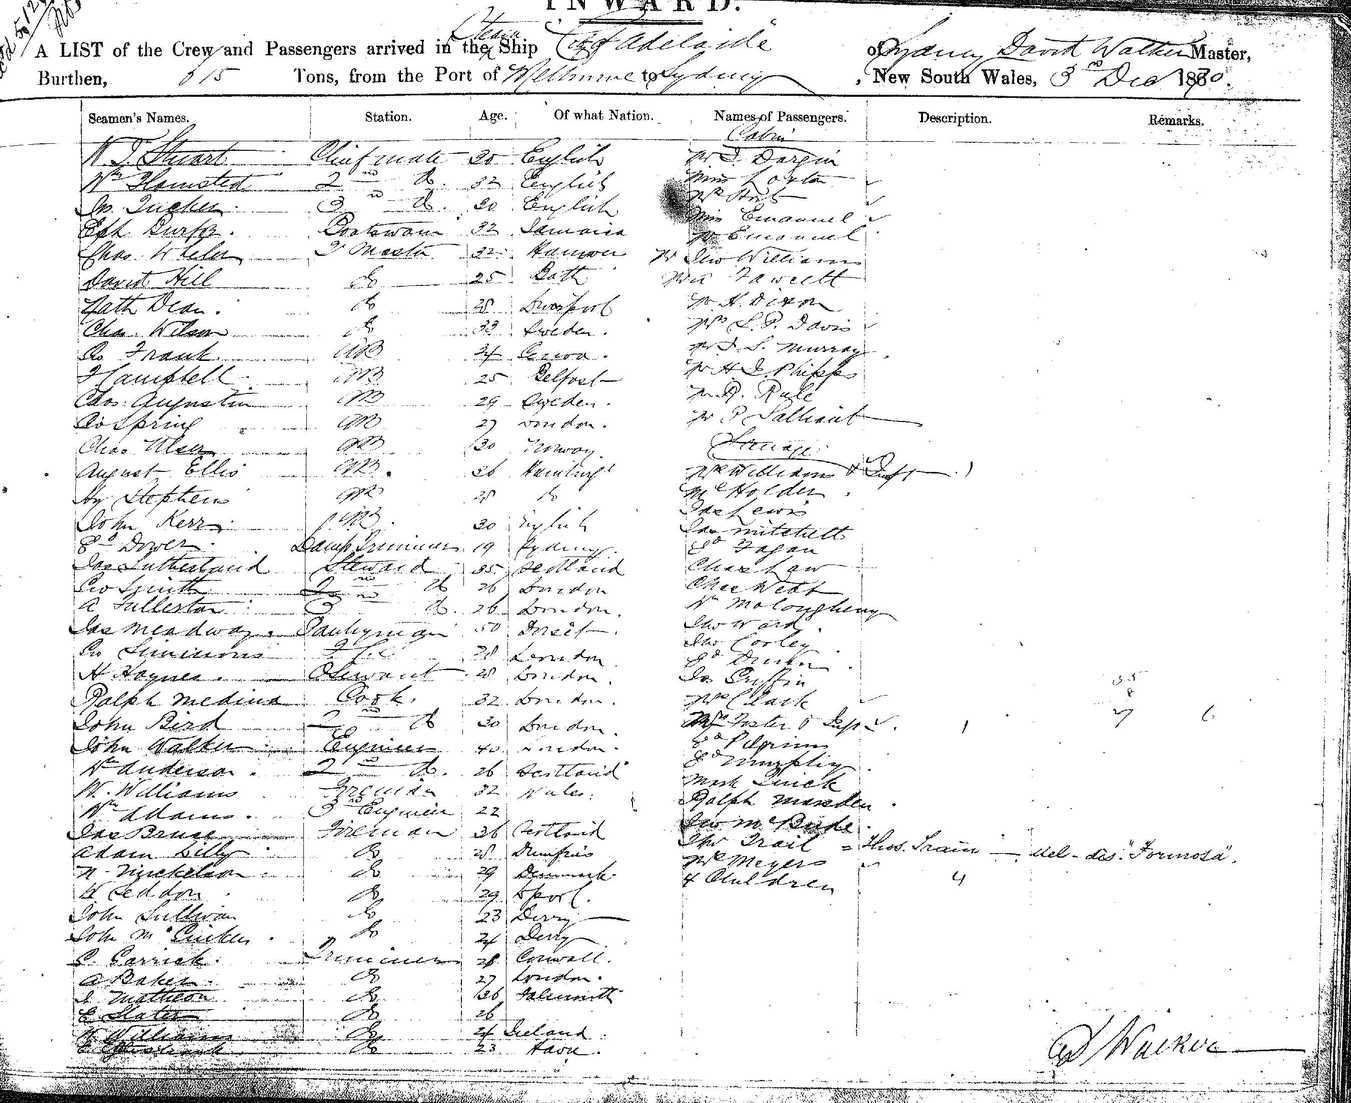 INWARD.
A LIST of the Crew and Passengers arrived in the Steam Ship City of Adelaide of Sydney David Walker Master,
Burthen, 615 Tons, from the Port of Melbourne to Sydney, New South Wales, 3rd Dec 1870.
Seamen's Names. Station. Age. Of what Nation. Names of Passengers. Description. Remarks.
Cabin
W J Stuart Chief mate 30 English
Wm 2nd Do. 32 English Miss
Jn. Tucker 3rd Do. 30 English Mr
Miss Emanuel
Eph Boatswain 32 Jamaica Mr Emanuel
Chas. 32 Hanover Mr Jno Williams
David Hill Do 25 Bath Fawcett
Nath Dean. Do 28 Liverpool Mr H. Dixon
Chas. Wilson Do 33 Sweden. Mrs L. P. Davis
Geo Frank AB 24 Genoa. Mr J. S. Murray
J Campbell AB 25 Belfast Mr H J Phipps
Chas. Augustin AB 29 Sweden. Mr R. Rule
Geo Spring AB 27 London. Mr P
Chas Olsen AB 30 Norway. Steerage
August Ellis AB. 26 Mrs Williams & Inft 1
Hy Stephens AB 28 Do Mr Holden
Jas Lewis
John Kerr AB. 30 English Jas Mitchell
Ed Dower. Lamp Trimmer 19 Sydney. Ed Fagan
Jas Sutherland Steward 35 Scotland Chas Law
Geo Smith 2nd Do 26 London Chas Webb
A Fullerton 3rd Do. 26 London. Wm
Jas Meadway. Pantryman 50 Jno Ward
Geo Simmons F.C. 28 London Jno Corley
Ed
H. Haynes. O Servant 28 London. Jas Griffin
Ralph Medina Cook. 32 London. Mrs Clark
John Bird 2nd Do 30 London. Mrs Foster & Inft. 1 7 6
John Walker Engineer 40 London. Ed Pilgrim
Wm Anderson. 2nd Do. 26 Scotland Ed Murphy
W. Williams Fireman 32 Wales. Mark Quick
Wm Adams. 3rd Engineer 22 Ralph Marsden.
Jas Bruce Fireman 36 Scotland Jno McBride.
Adam Lilly Do 28 Dumfries Thos Trail = Thos. Train — del-des. "Formosa".
N. Nickelson Do 29 Denmark. Mrs Meyers
W Seddon. Do 29 L'pool. 4 Children 4
John Sullivan Do 23 Derry
John Do 24 Derry
C. Carrick. Trimmer 28 Cornwall.
A Baker Do 27 London.
J. Matheson Do 36 Falmouth
E Slater Do 26
W Williams Do 24 Ireland
Do 23 Havre.
D Walker